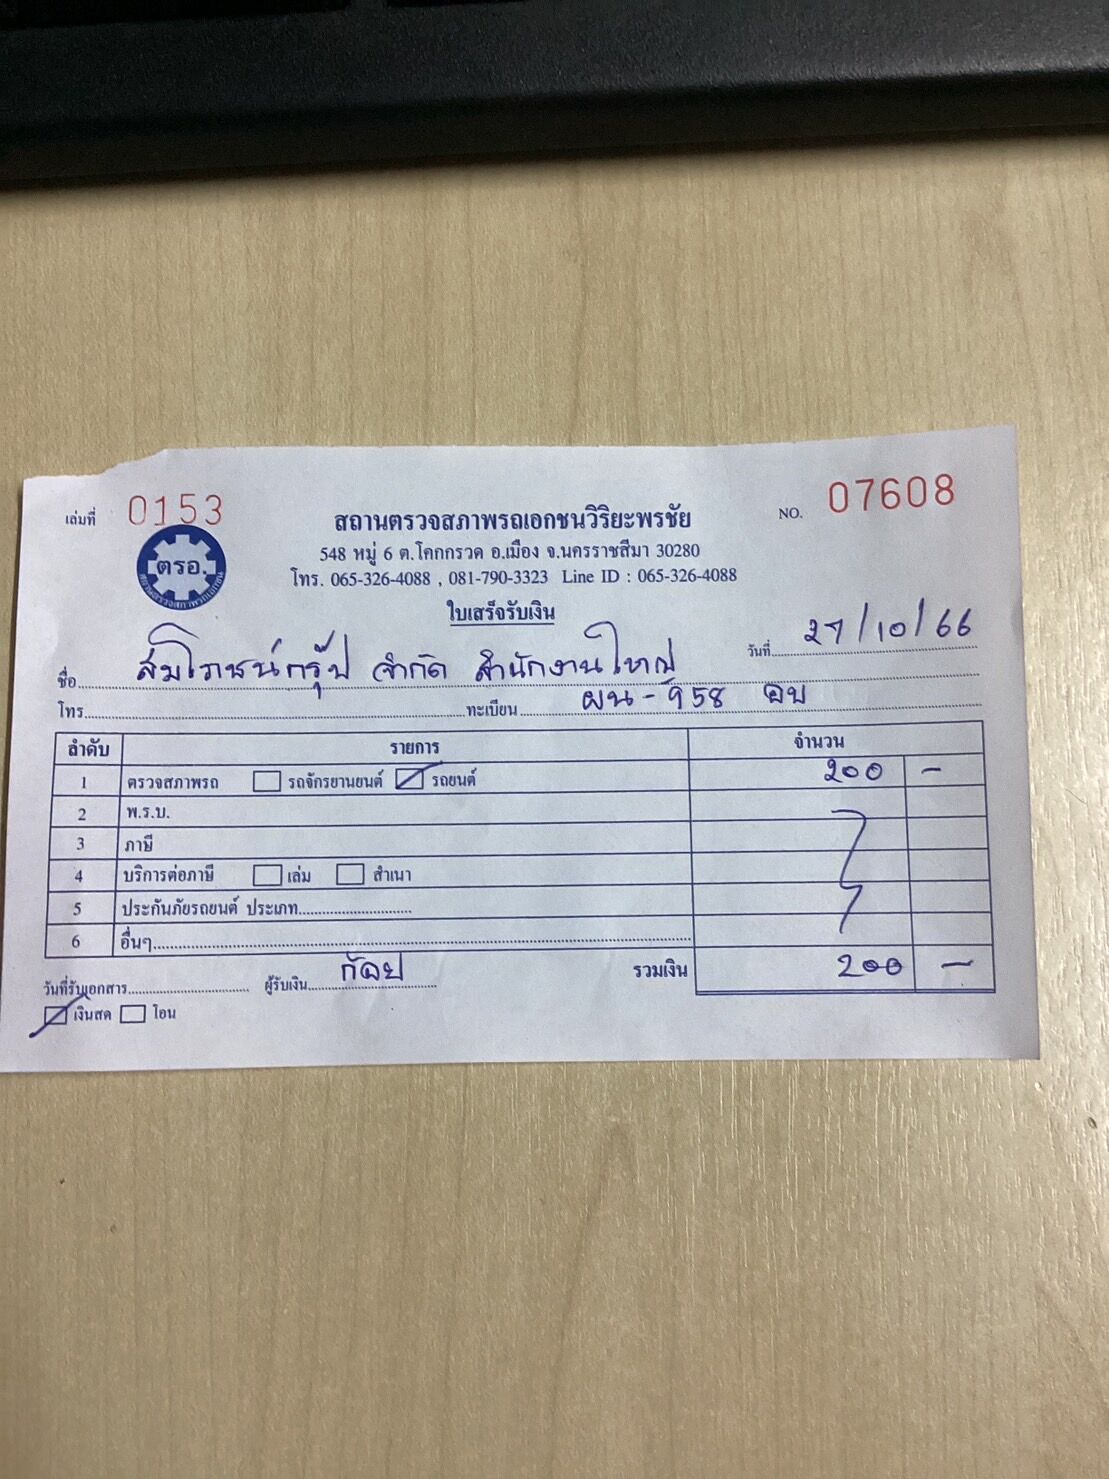 เล่มที่ 0153
NO. 07608
ตรอ.
สถานตรวจสภาพรถเอกชน
สถานตรวจสภาพรถเอกชนวิริยะพรชัย
548 หมู่ 6 ต.โคกกรวด อ.เมือง จ.นครราชสีมา 30280
โทร. 065-326-4088 , 081-790-3323 Line ID : 065-326-4088
ใบเสร็จรับเงิน
วันที่ 27/10/66
ชื่อ สมโภชน์กรุ้ป จำกัด สำนักงานใหญ่
โทร. ทะเบียน ผน-958 อบ
ลำดับ รายการ จำนวน
1 ตรวจสภาพรถ รถจักรยานยนต์ รถยนต์ 200 -
2 พ.ร.บ.
3 ภาษี
4 บริการต่อภาษี เล่ม สำเนา
5 ประกันภัยรถยนต์ ประเภท
6 อื่นๆ
วันที่รับเอกสาร ผู้รับเงิน รวมเงิน 200 -
เงินสด โอน